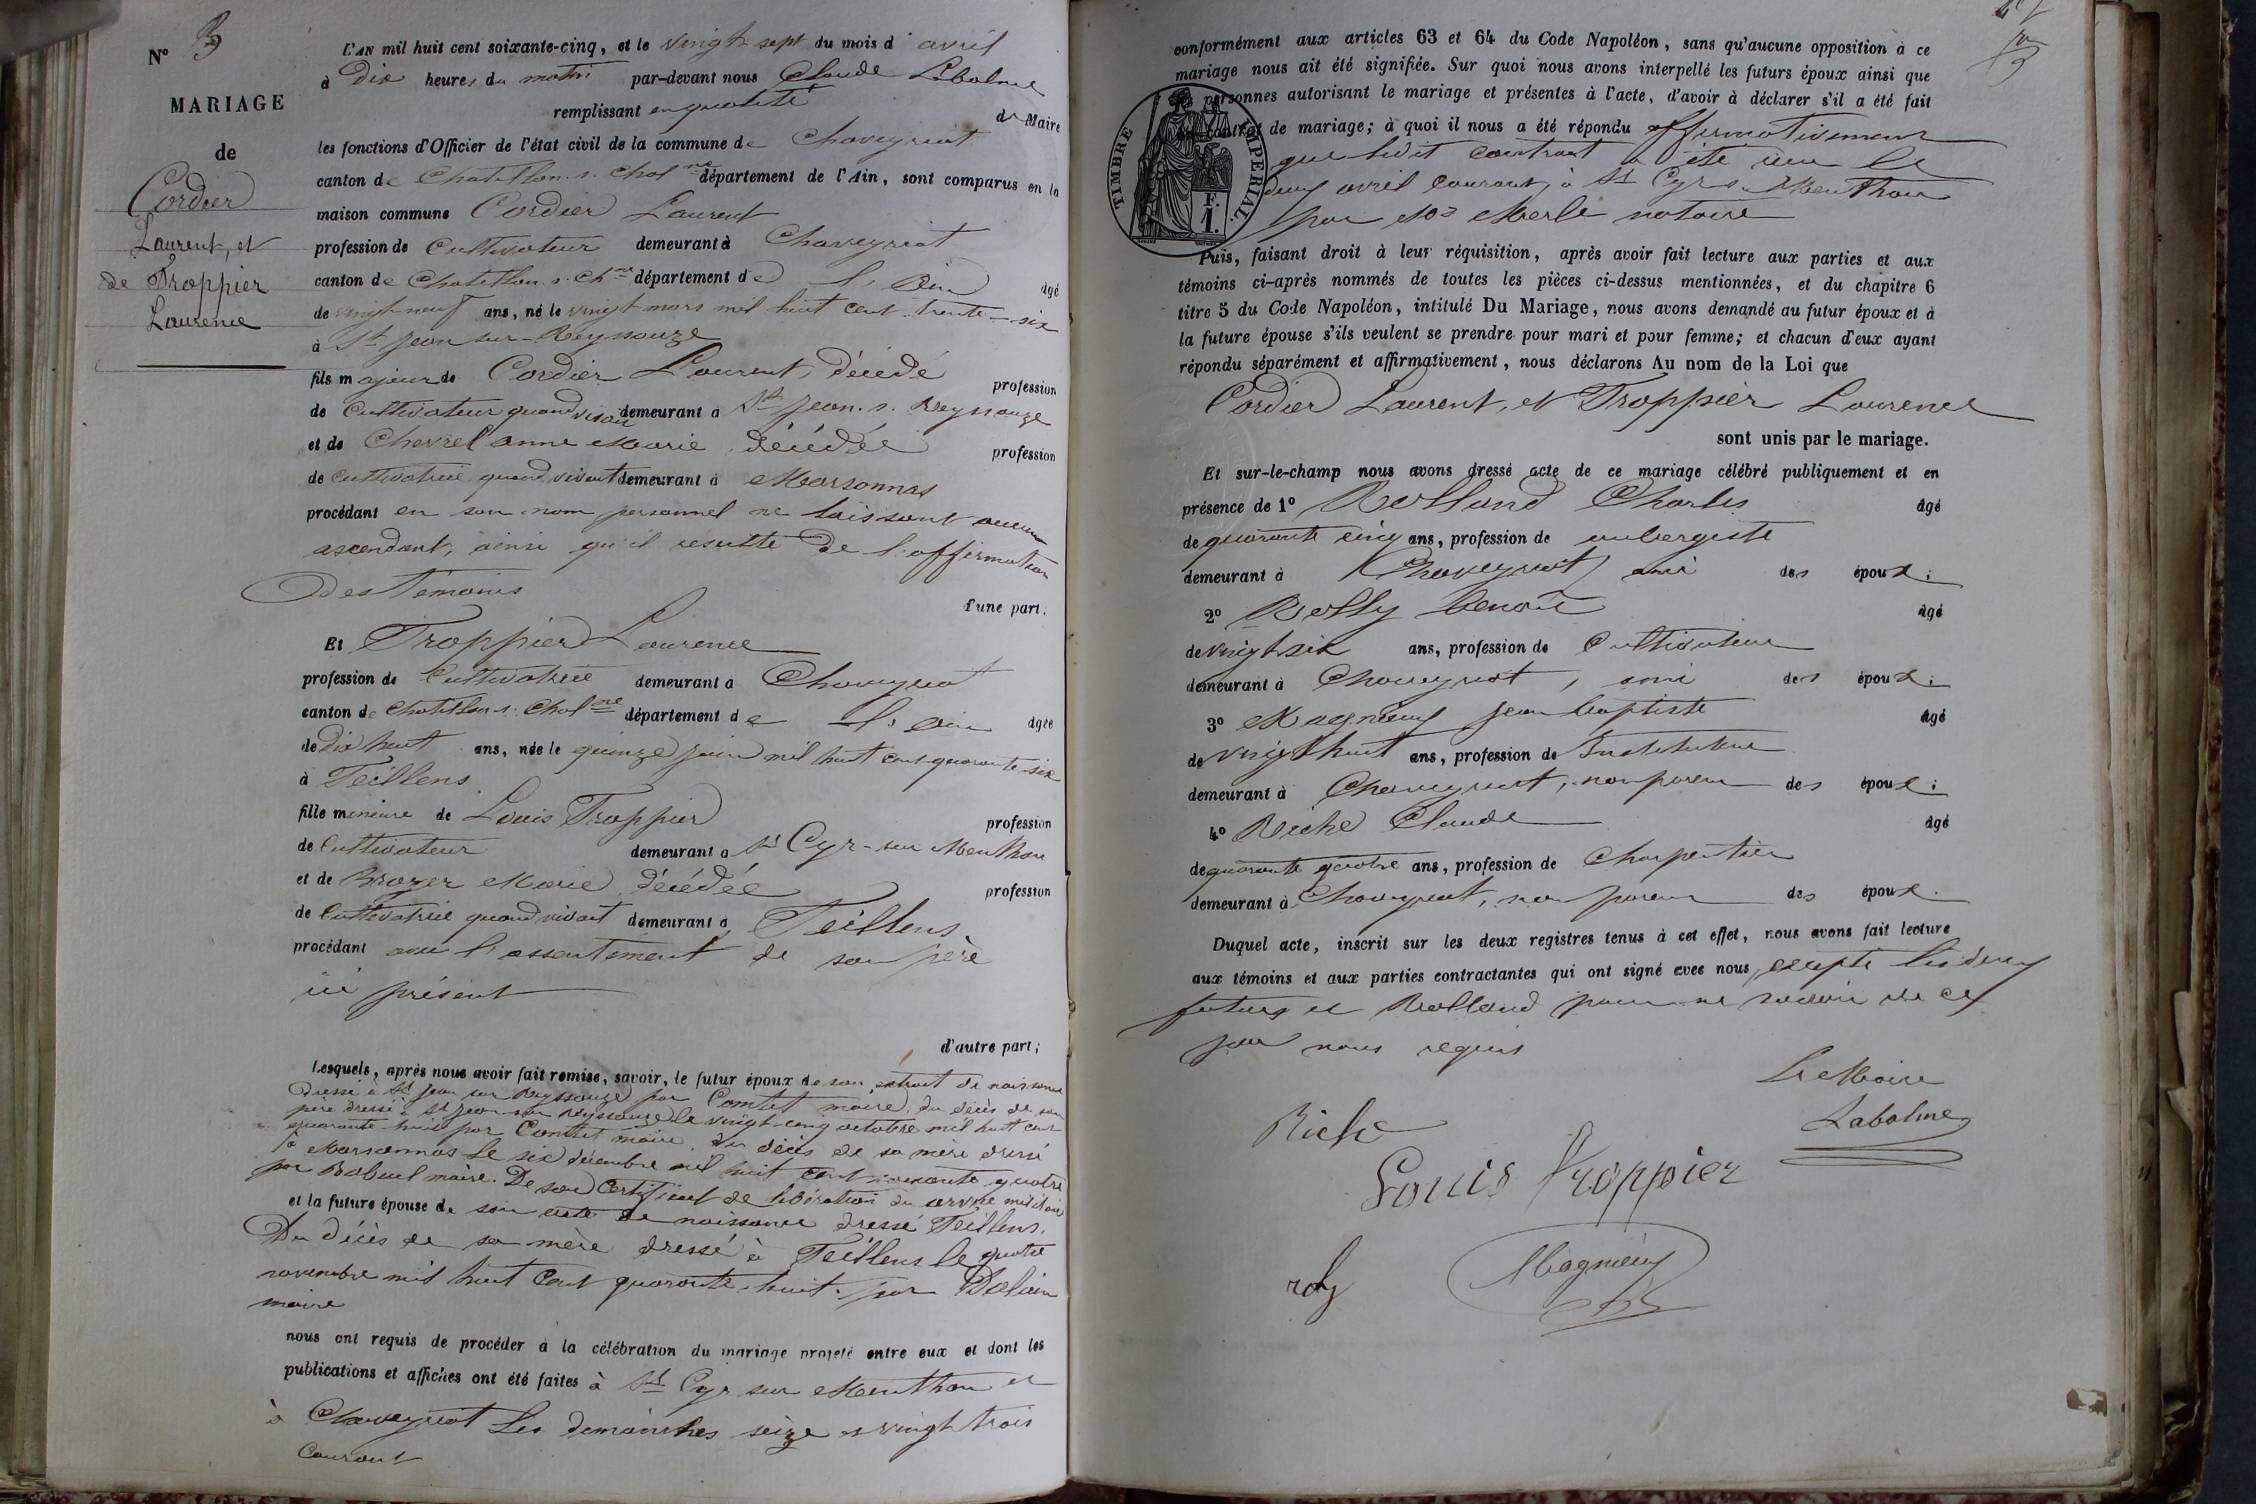 N° 3
MARIAGE
de
Cordier
Laurent, et
de Troppier
Laurence
L'AN mil huit cent soixante-cinq, et le vingt sept du mois d'avril
à dix heures du matin par-devant nous Claude Labalme
remplissant en qualité de Maire
les fonctions d'Officier de l'état civil de la commune de Chaveyriat
canton de Chatillon s. Chal.ne département de l'Ain, sont comparus en la
maison commune Cordier Laurent
profession de Cultivateur demeurant à Chaveyriat
canton de Chatillon s. Ch.ne département de l'Ain âgé
de vingt neuf ans, né le vingt mars mil huit cent trente-six
à St Jean sur Reyssouze
fils majeur de Cordier Laurent, décédé profession
de Cultivateur quand vivait demeurant à St Jean s. Reyssouze
et de Chevrel anne Marie décédée profession
de Cultivatrice quand vivait demeurant à Marsonnas
procédant en son nom personnel ne laissant aucun
ascendant, ainsi qu'il resulte de l'affirmation
des témoins
d'une part.
Et Troppier Laurence
profession de Cultivatrice demeurant à Chaveyriat
canton de Chatillon s. Chal.ne département de l'ain âgée
de dix huit ans, née le quinze juin mil huit cent quarante-six
à Teillens
fille mineure de Louis Troppier profession
de Cultivateur demeurant à St Cyr-sur Menthon
et de Brazer Marie décédée profession
de Cultivatrice quand vivait demeurant à Teillens
procédant avec l'assentiment de son père
ici présent
d'autre part;
Lesquels, après nous avoir fait remise, savoir, le futur époux de son extrait de naissance
dressé à St Jean sur Reyssouze par Comtet maire, du décès de son
père dressé à St Jean sur Reyssouze le vingt-cinq octobre mil huit cent
quarante-huit par Comtet maire, du décès de sa mère dressé
à Marsonnas le six décembre mil huit cent soixante quatre
par maire. De son Certificat de libération du service militaire
et la future épouse de son acte de naissance dressé Teillens.
Du décès de sa mère dressé à Teillens le quatre
novembre mil huit cent quarante-huit. par
maire
nous ont requis de procéder à la célébration du mariage projeté entre eux et dont les
publications et affiches ont été faites à St Cyr sur Menthon et
à Chaveyriat les dimanches seize et vingt trois
Courant
conformément aux articles 63 et 64 du Code Napoléon, sans qu'aucune opposition à ce
mariage nous ait été signifiée. Sur quoi nous avons interpellé les futurs époux ainsi que
les personnes autorisant le mariage et présentes à l'acte, d'avoir à déclarer s'il a été fait
un contrat de mariage; à quoi il nous a été répondu affirmativement
que ledit contrat a été le
deux avril courant, à St Cyr s. Menthon
par Merle notaire
TIMBRE IMPERIAL.
F.
1.
Puis, faisant droit à leur réquisition, après avoir fait lecture aux parties et aux
témoins ci-après nommés de toutes les pièces ci-dessus mentionnées, et du chapitre 6
titre 5 du Code Napoléon, intitulé Du Mariage, nous avons demandé au futur époux et à
la future épouse s'ils veulent se prendre pour mari et pour femme; et chacun d'eux ayant
répondu séparément et affirmativement, nous déclarons Au nom de la Loi que
Cordier Laurent, et Troppier Laurence
sont unis par le mariage.
Et sur-le-champ nous avons dressé acte de ce mariage célébré publiquement et en
présence de 1° Rolland Charles âgé
de quarante cinq ans, profession de aubergiste
demeurant à Chaveyriat, ami des époux;
2° Rolly benoit âgé
de vingt six ans, profession de Cultivateur
demeurant à Chaveyriat, ami des époux;
3° Magnieny jean baptiste âgé
de vingt huit ans, profession de Instituteur
demeurant à Chaveyriat, non parent des époux;
4° Riche Claude âgé
de quarante quatre ans, profession de Charpentier
demeurant à Chaveyriat, non parent des époux.
Duquel acte, inscrit sur les deux registres tenus à cet effet, nous avons fait lecture
aux témoins et aux parties contractantes qui ont signé avec nous, excepté les deux
futurs et Rolland pour ne savoir de ce
par nous requis
Le Maire
Labalme
Riche
Louis troppier
Magnieny
roly